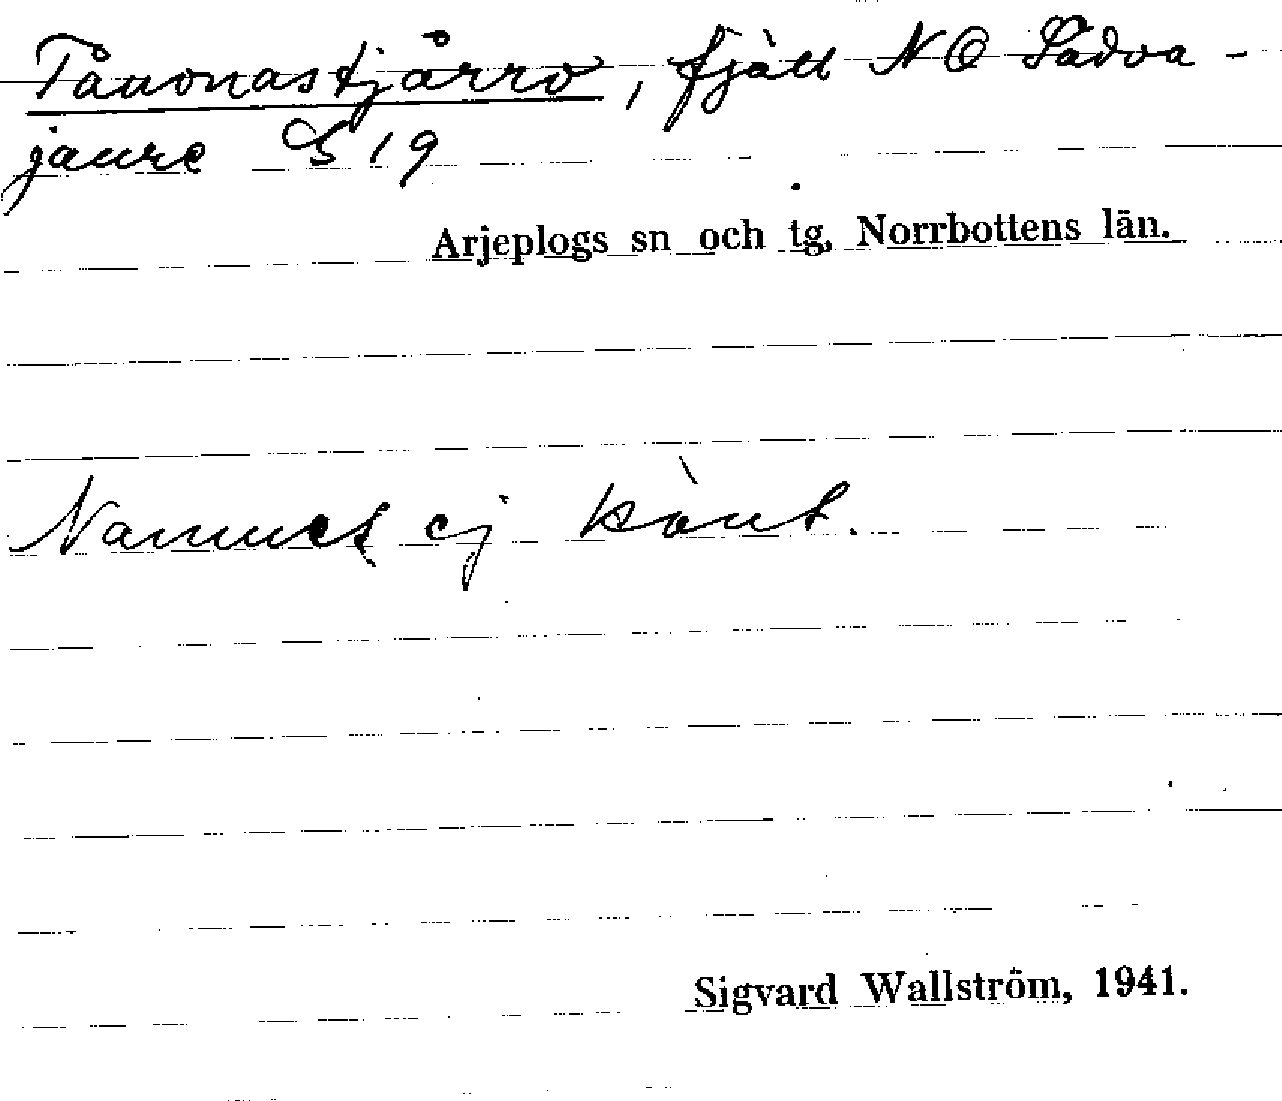 Tauonastjårro, fjäll NO Sadva-
jaure S 19
Arjeplogs sn och tg, Norrbottens län.
Namnet ej känt.
Sigvard Wallström, 1941.